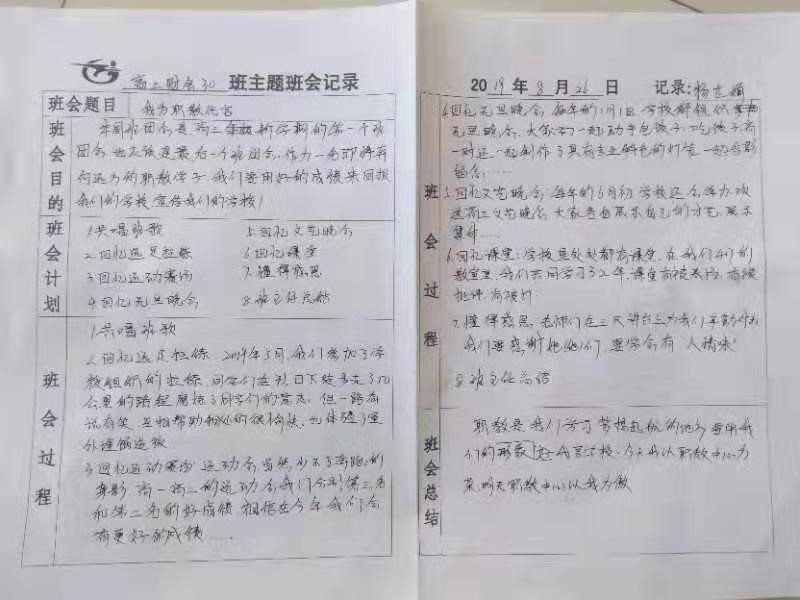 高二财会30 班主题班会记录
班会题目 我为职教代言
班会目的
本周班团会是高二年级新学期的第一个班
团会,也应该是最后一个班团会,作为一名即将有
何远为的职教学子,我们要用好的成绩来回报
我们的学校,宣传我们的学校!
班会计划
1.共唱班歌 5.回忆文艺晚会
2.回忆远足拉练 6.回忆课堂
3.回忆运动赛场 7.懂得感恩
4.回忆元旦晚会 8.班主任总结
班会过程
1.共唱班歌
2.回忆远足拉练,2019年5月,我们参加了学
校组织的拉练,同学们在烈日下徒步走了几
公里的路程,磨练了同学们的意志,但一路有
说有笑,互相帮助
3.回忆运动赛场,运动会当然少不了奔跑的
身影,高一高二的运动会我们分别第三名
和第二名的好成绩,相信在今年我们会
有更好的成绩……
2019年8月26日 记录:
班会过程
4.回忆元旦晚会,每年的1月1日学校都组织
元旦晚会,大家一起动手包饺子,吃饺子,高
一时还一起制作了具有专业特色的灯笼,一起合影
留念……
5.回忆文艺晚会,每年的6月初学校还会举办欢
送高三文艺晚会,大家尽力展示自己的才艺,展示
集体……
6.回忆课堂:学校里处处都有课堂,在我们的
教室里,我们共同学习了2年,课堂有被表扬,有被
批评,有被
7.懂得感恩,老师们在三尺讲台上为我们
我们要感谢他(她)们,要学会有"人情味"
8.班主任总结
班会总结
职教是我们学习梦想起航的地方,要用我
们的形象宣传学校,今天我以职教中心为
荣,明天职教中心以我为傲